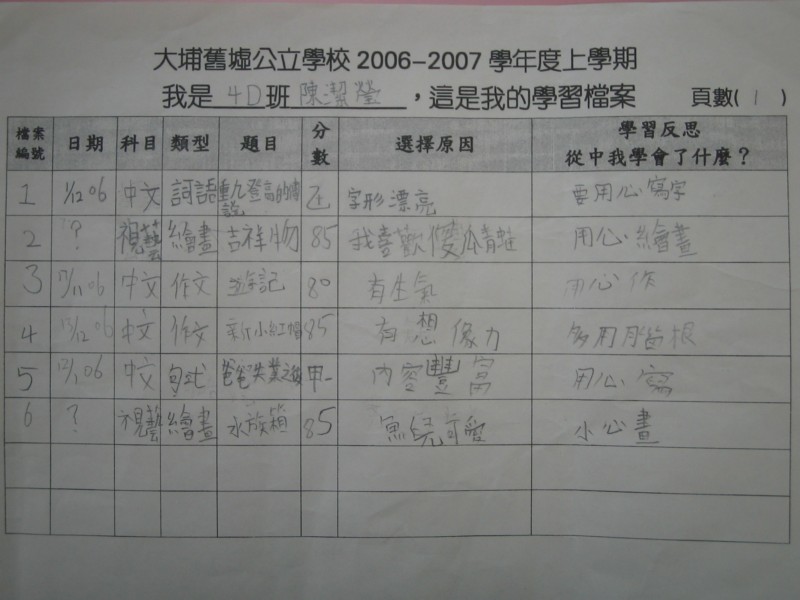 大埔舊墟公立學校 2006-2007 學年度上學期
我是 4D 班 陳潔瑩 ，這是我的學習檔案 頁數( 1 )
檔案編號 日期 科目 類型 題目 分數 選擇原因 學習反思 從中我學會了什麼？
1 1/12 06 中文 詞語 重九登高的傳說 字形漂亮 要用心寫字
2 ? 視藝 繪畫 吉祥物 85 我喜歡傻瓜青蛙 用心繪畫
3 中文 作文 遊記 80 有生氣 用心作
4 中文 作文 新小紅帽 85 有想像力 多用腦筋
5 中文 句式 爸爸失業之後 甲- 內容豐富 用心寫
6 ? 視藝 繪畫 水族箱 85 魚兒可愛 小心畫